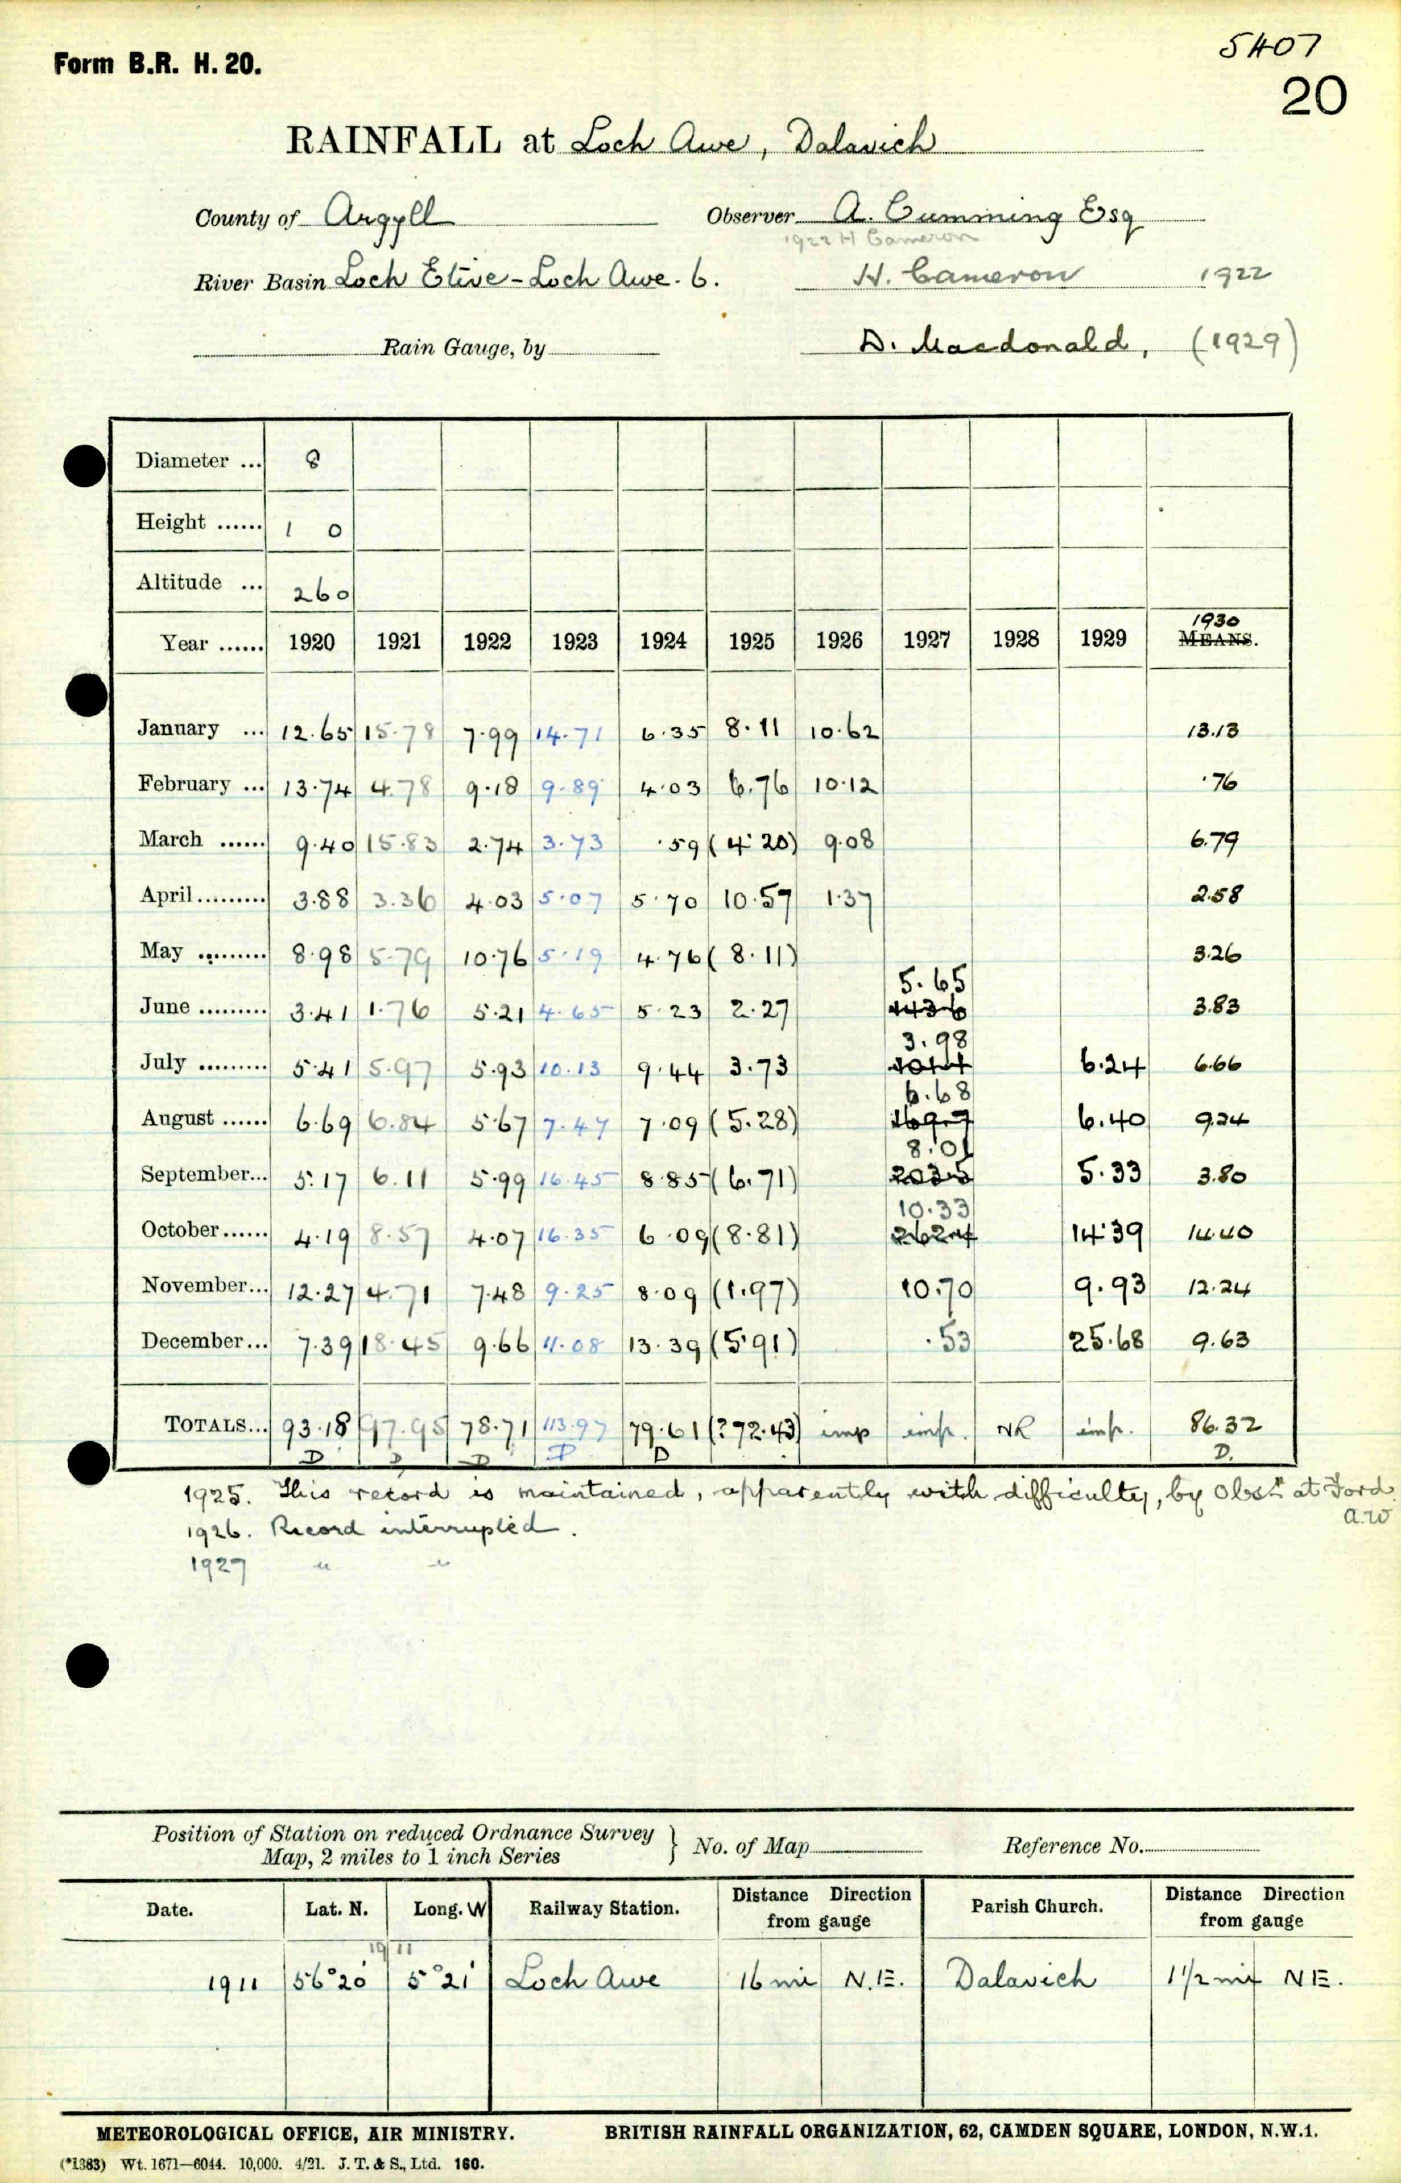 5407
Form B.R. H. 20.
20
RAINFALL at Loch Awe, Dalavich
County of Argyll Observer A. Cumming Esq
1922 H Cameron
River Basin Loch Etive - Loch Awe. 6. H. Cameron 1922
Rain Gauge, by D. Macdonald, (1929)
Diameter ... 8
Height ...... 1 0
Altitude ... 260
1930
Year ...... 1920 1921 1922 1923 1924 1925 1926 1927 1928 1929 MEANS.
January ... 12.65 15.78 7.99 14.71 6.35 8.11 10.62 13.13
February ... 13.74 4.78 9.18 9.89 4.03 6.76 10.12 .76
March ...... 9.40 15.83 2.74 3.73 .59 (4.20) 9.08 6.79
April ......... 3.88 3.36 4.03 5.07 5.70 10.57 1.37 2.58
May ......... 8.98 5.79 10.76 5.19 4.76 (8.11) 3.26
5.65
June ......... 3.41 1.76 5.21 4.65 5.23 2.27 1436 3.83
3.98
July ......... 5.41 5.97 5.93 10.13 9.44 3.73 1011 6.24 6.66
6.68
August ...... 6.69 6.84 5.67 7.47 7.09 (5.28) 1697 6.40 9.24
8.01
September... 5.17 6.11 5.99 16.45 8.85 (6.71) 2035 5.33 3.80
10.33
October...... 4.19 8.57 4.07 16.35 6.09 (8.81) 2624 14.39 14.40
November... 12.27 4.71 7.48 9.25 8.09 (1.97) 10.70 9.93 12.24
December... 7.39 18.45 9.66 11.08 13.39 (5.91) .53 25.68 9.63
TOTALS... 93.18 97.95 78.71 113.97 79.61 (?72.43) imp imp. NR imp. 86.32
D D D D D D.
1925. This record is maintained, apparently with difficulty, by Obsr at Ford.
A.W
1926. Record interrupted.
1927 " "
Position of Station on reduced Ordnance Survey
Map, 2 miles to 1 inch Series } No. of Map Reference No.
Date. Lat. N. Long. W Railway Station. Distance Direction from gauge Parish Church. Distance Direction from gauge
1911
1911 56°20' 5°21' Loch Awe 16 mi N.E. Dalavich 1 1/2 mi NE.
METEOROLOGICAL OFFICE, AIR MINISTRY. BRITISH RAINFALL ORGANIZATION, 62, CAMDEN SQUARE, LONDON, N.W.1.
(*1383) Wt. 1671—6044. 10,000. 4/21. J. T. & S., Ltd. 160.